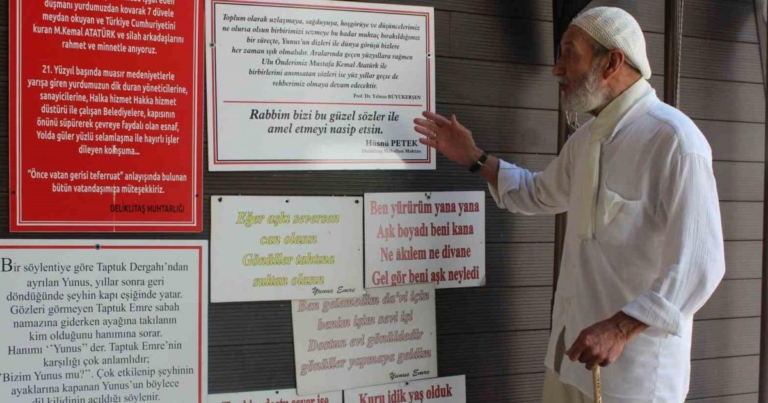 düşmanı yurdumuzdan kovarak 7 düvele
meydan okuyan ve Türkiye Cumhuriyetini
kuran M.Kemal ATATÜRK ve silah arkadaşlarını
rahmet ve minnetle anıyoruz.
21. Yüzyıl başında muasır medeniyetlerle
yarışa giren yurdumuzun dik duran yöneticilerine,
sanayicilerine, Halka hizmet Hakka hizmet
düstürü ile çalışan Belediyelere, kapısının
önünü süpürerek çevreye faydalı olan esnaf,
Yolda güler yüzlü selamlaşma ile hayırlı işler
dileyen komşuma...
"Önce vatan gerisi teferruat" anlayışında bulunan
bütün vatandaşımıza müteşekkiriz.
DELİKLİTAŞ MUHTARLIĞI
Toplum olarak uzlaşmaya, sağduyuya, hoşgörüye ve düşüncelerimiz
ne olursa olsun birbirimizi sevmeye bu kadar muhtaç bırakıldığımız
bir süreçte, Yunus'un dizleri ile dünya görüşü bizlere
her zaman ışık olmalıdır. Aralarında geçen yüzyıllara rağmen
Ulu Önderimiz Mustafa Kemal Atatürk ile
birbirlerini anımsatan sözleri ise yüz yıllar geçse de
rehberimiz olmaya devam edecektir.
Prof. Dr. Yılmaz BÜYÜKERŞEN
Rabbim bizi bu güzel sözler ile
amel etmeyi nasip etsin.
Hüsnü PETEK
Deliklitaş Mahallesi Muhtarı
Eğer aşkı seversen
can olasın
Gönüller tahtına
sultan olasın
Yunus Emre
Ben yürürüm yana yana
Aşk boyadı beni kana
Ne âkilem ne divane
Gel gör beni aşk neyledi
Ben gelmedim da'vi için
benim işim sevi işi
Dostun evi gönüldedir
gönüller yapmaya geldim
Yunus Emre
Bir söylentiye göre Taptuk Dergahı'ndan
ayrılan Yunus, yıllar sonra geri
döndüğünde şeyhin kapı eşiğinde yatar.
Gözleri görmeyen Taptuk Emre sabah
namazına giderken ayağına takılanın
kim olduğunu hanımına sorar.
Hanımı ''Yunus'' der. Taptuk Emre'nin
karşılığı çok anlamlıdır;
'Bizim Yunus mu?''. Çok etkilenip şeyhinin
ayaklarına kapanan Yunus'un böylece
dil kilidinin açıldığı söylenir.
Kuru idik yaş olduk